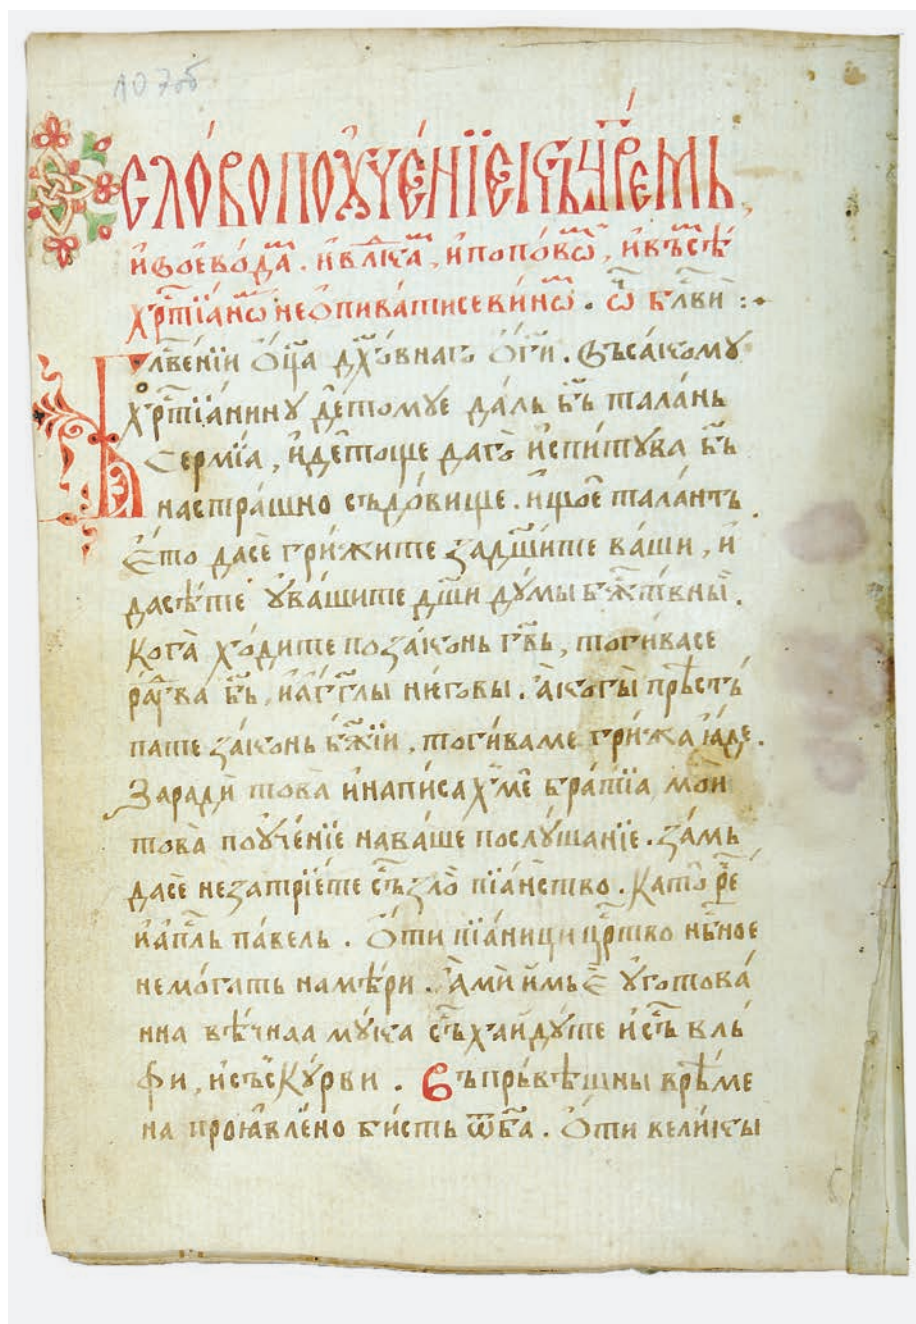 1076
СЛО́ВО ПОꙊЧЕ́НЇЕ И҆ СЪ ЦР҃ЕМЬ,
и҆ воево́дам. и҆ вл҃кам, и҆ попо́вѡм, и҆ въсѣ́
хрⷭ҇тїа́нѡм не ѻ҆пиватисе ви́нѡм. ѿ бл҃ви :·
Бл҃ве́нїи ѻ҆ц҃а дх҃о́внаго ѻ҆́ги. Въсакому
хрⷭ҇тїа́нину де́томꙋ е да́ль бг҃ь тала́нь
Сермїа, и҆ де́тоще да го̀ испи́тꙋва бг҃ь
на стра́шно съдо́вище. и҆ що е҆ тала́нтъ
Е҆́то да сѐ гри́жите за дш҃и́те ва́ши, и҆
да сѣ́те ꙋ҆ ва́шите дш҃и дꙋ́мы бж҃тв҃ны.
Кога̀ хо́дите по зако́нь гв҃ь, тоги́ва се
ра́дꙋва бг҃ь, и҆ а҆гг҃лы ни́говы. а҆ кога̀ прѣстѫ́
пате зако́нь бж҃їи, тоги́ва ме гри́жа ꙗ҆де.
Зарадѝ това̀ и҆ написа́хме бра́тїа мо́и
това̀ поꙋче́нїе на ва́ше послꙋ́шанїе. за́мь
да сѐ не затрїе́те съ зло̀ пїа́нство. Като̀ ре҃
и҆ а҆пⷭ҇ль па́вель. Ѻ҆ти пїа́ници црⷭ҇тво нб҃ное
не мо́гать намѣ́ри. А҆мѝ и҆́мь є҆ ꙋ҆готова́
нна вѣ́чнаа мꙋ́ка съ хайдꙋ́те и҆ съ влъ́
фи, и҆ съ кꙋ́рви. Въ прь́вѣшны врѣ́ме
на проꙗ҆вле́но би́сть ѿ бг҃а. Ѻ҆ти вели́кы